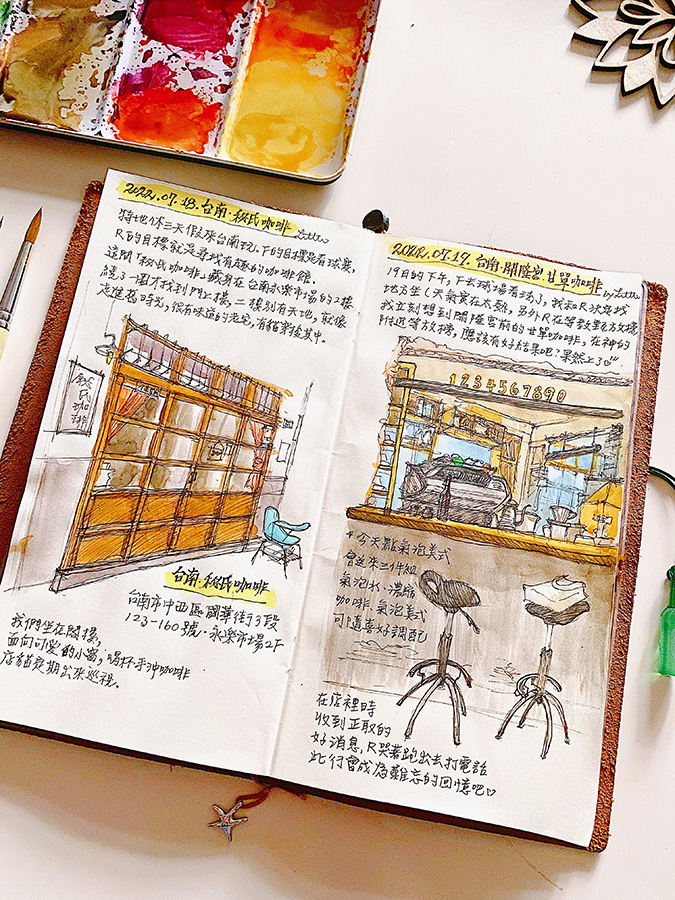 2022.07.18.台南·秘氏咖啡 Little
特地休三天假來台南玩,F的目標是看球賽,
R的目標就是尋找有趣的咖啡館。
這間「秘氏咖啡」藏身在台南永樂市場的2樓
繞了一圈才找到門上樓,二樓別有天地,就像
走進舊時光,很有味道的老宅,有貓穿梭其中。
秘氏咖啡
台南·秘氏咖啡
台南市中西區國華街3段
123-160號·永樂市場2F
我們坐在閣樓,
面向可愛的小窗,喝杯手沖咖啡
店貓定期出來巡視。
2022.07.19.台南·開隆宮·甘單咖啡 by Little
19日的下午,F去球場看球了,我和R決定找
地方坐(天氣實在太熱,另外R在等教甄放榜
我立刻想到開隆宮前的甘單咖啡,在神的
附近等放榜,應該有好結果吧?果然上了
1234567890
今天點氣泡美式
會送來三件組
氣泡水·濃縮
咖啡·氣泡美式
可隨喜好調配
在店裡時
收到正取的
好消息,R哭著跑出去打電話
此行會成為難忘的回憶吧♡